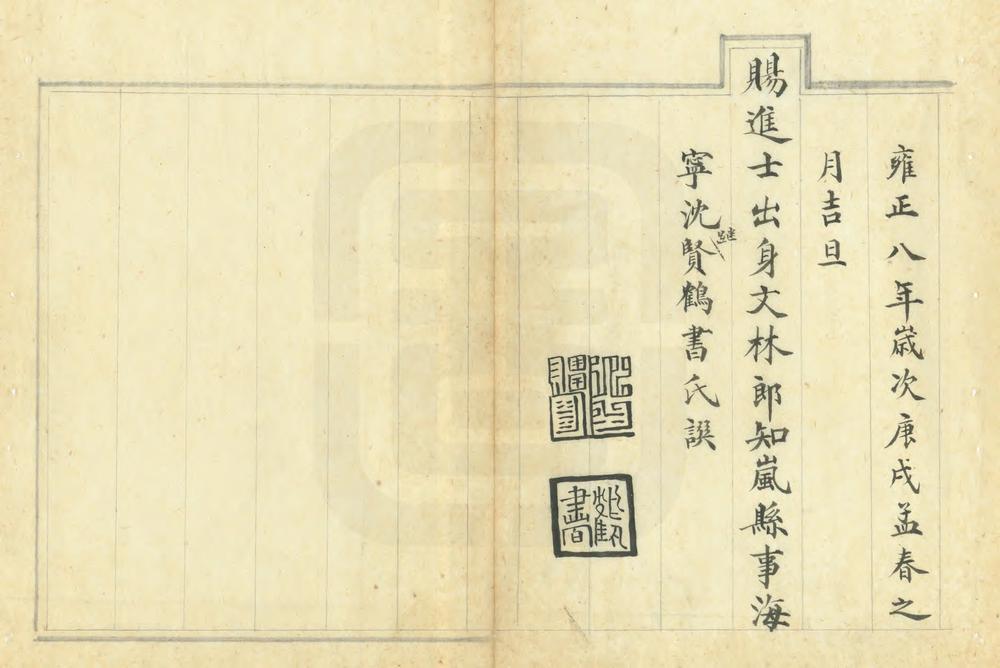 雍正八年歲次庚戌孟春之
月吉旦
賜進士出身文林郎知嵐縣事海
寧沈継賢鶴書氏譔